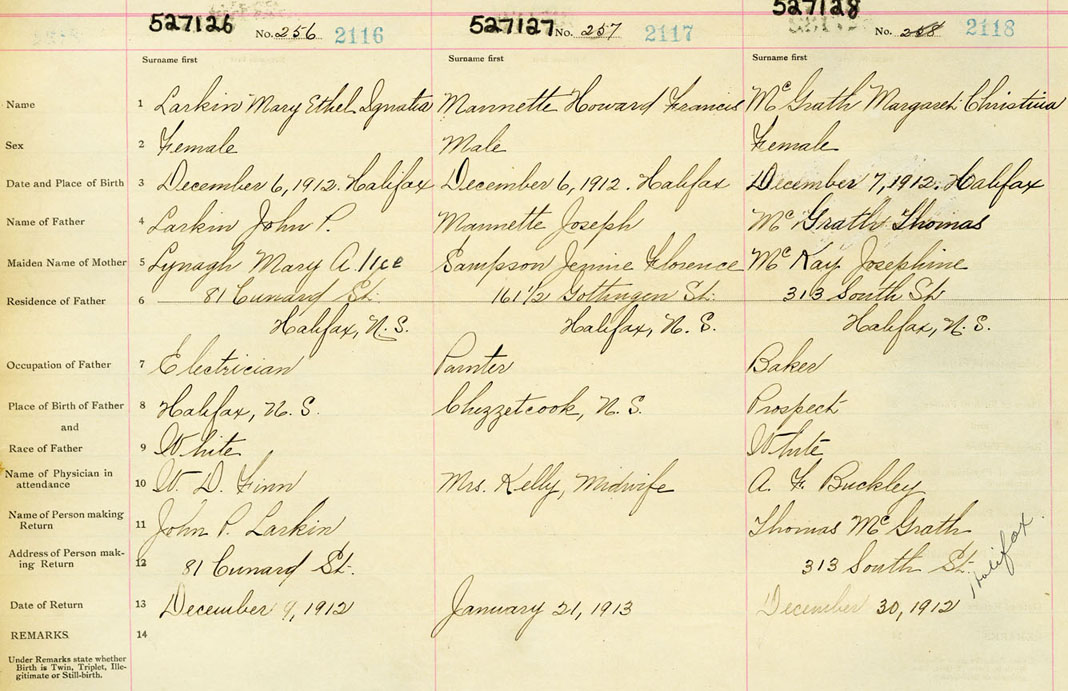 527126 No. 256 2116 527127 No. 257 2117 527128 No. 258 2118
Surname first Surname first Surname first
Name 1 Larkin Mary Ethel Ignatia Mannette Howard Francis McGrath Margaret Christina
Sex 2 Female Male Female
Date and Place of Birth 3 December 6, 1912. Halifax December 6, 1912. Halifax December 7, 1912. Halifax
Name of Father 4 Larkin John P. Mannette Joseph McGrath Thomas
Maiden Name of Mother 5 Lynagh Mary Alice Sampson Jennie Florence McKay Josephine
Residence of Father 6 81 Cunard St. 161 1/2 Gottingen St. 313 South St
Halifax, N.S. Halifax, N.S. Halifax, N.S.
Occupation of Father 7 Electrician Painter Baker
Place of Birth of Father 8 Halifax, N.S. Chezzetcook, N.S. Prospect
and
Race of Father 9 White White
Name of Physician in
attendance 10 W. D. Finn Mrs. Kelly, Midwife A. F. Buckley
Name of Person making
Return 11 John P. Larkin Thomas McGrath
Address of Person mak-
ing Return 12 81 Cunard St. 313 South St. Halifax.
Date of Return 13 December 9, 1912 January 21, 1913 December 30, 1912
REMARKS 14
Under Remarks state whether
Birth is Twin, Triplet, Ille-
gitimate or Still-birth.